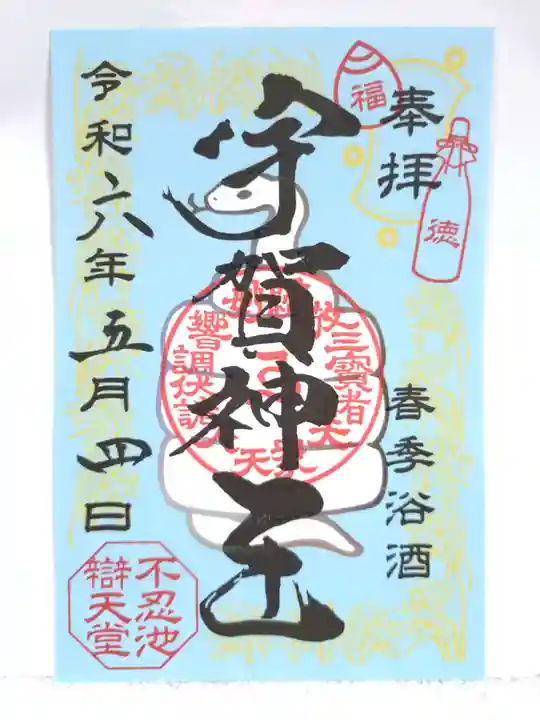 奉拝
福
徳
春季浴酒
宇賀神王
令和六年五月四日
不忍池
辯天堂